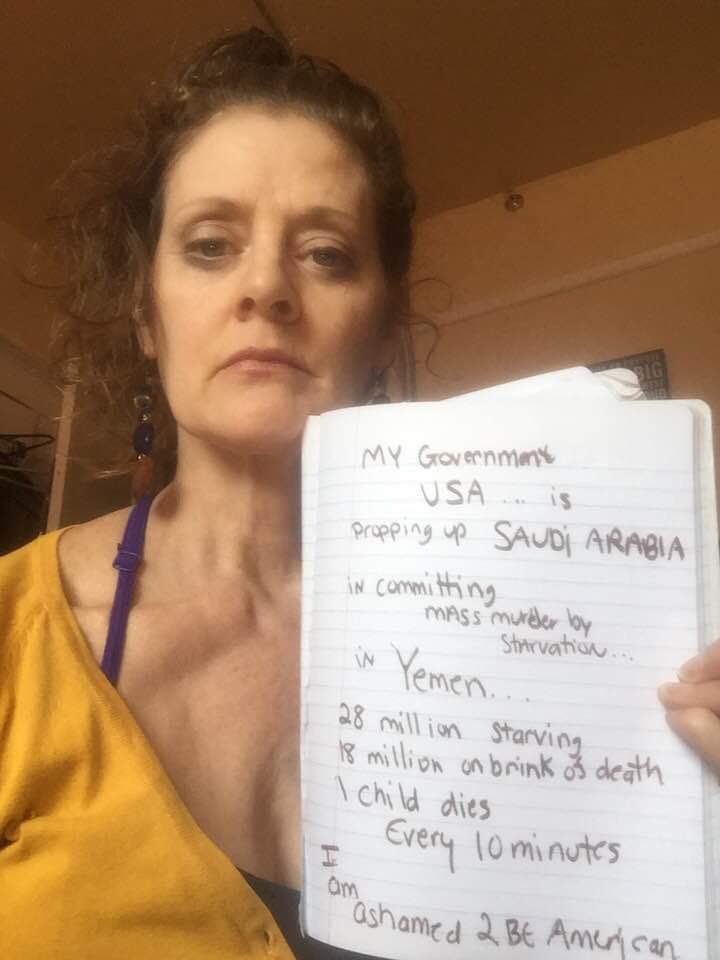 BIG
MY Government
USA ... is
propping up SAUDi ARABIA
in committing
mass murder by
Starvation...
in Yemen...
28 million starving
18 million on brink of death
1 child dies
Every 10 minutes
I
am
ashamed 2 BE American